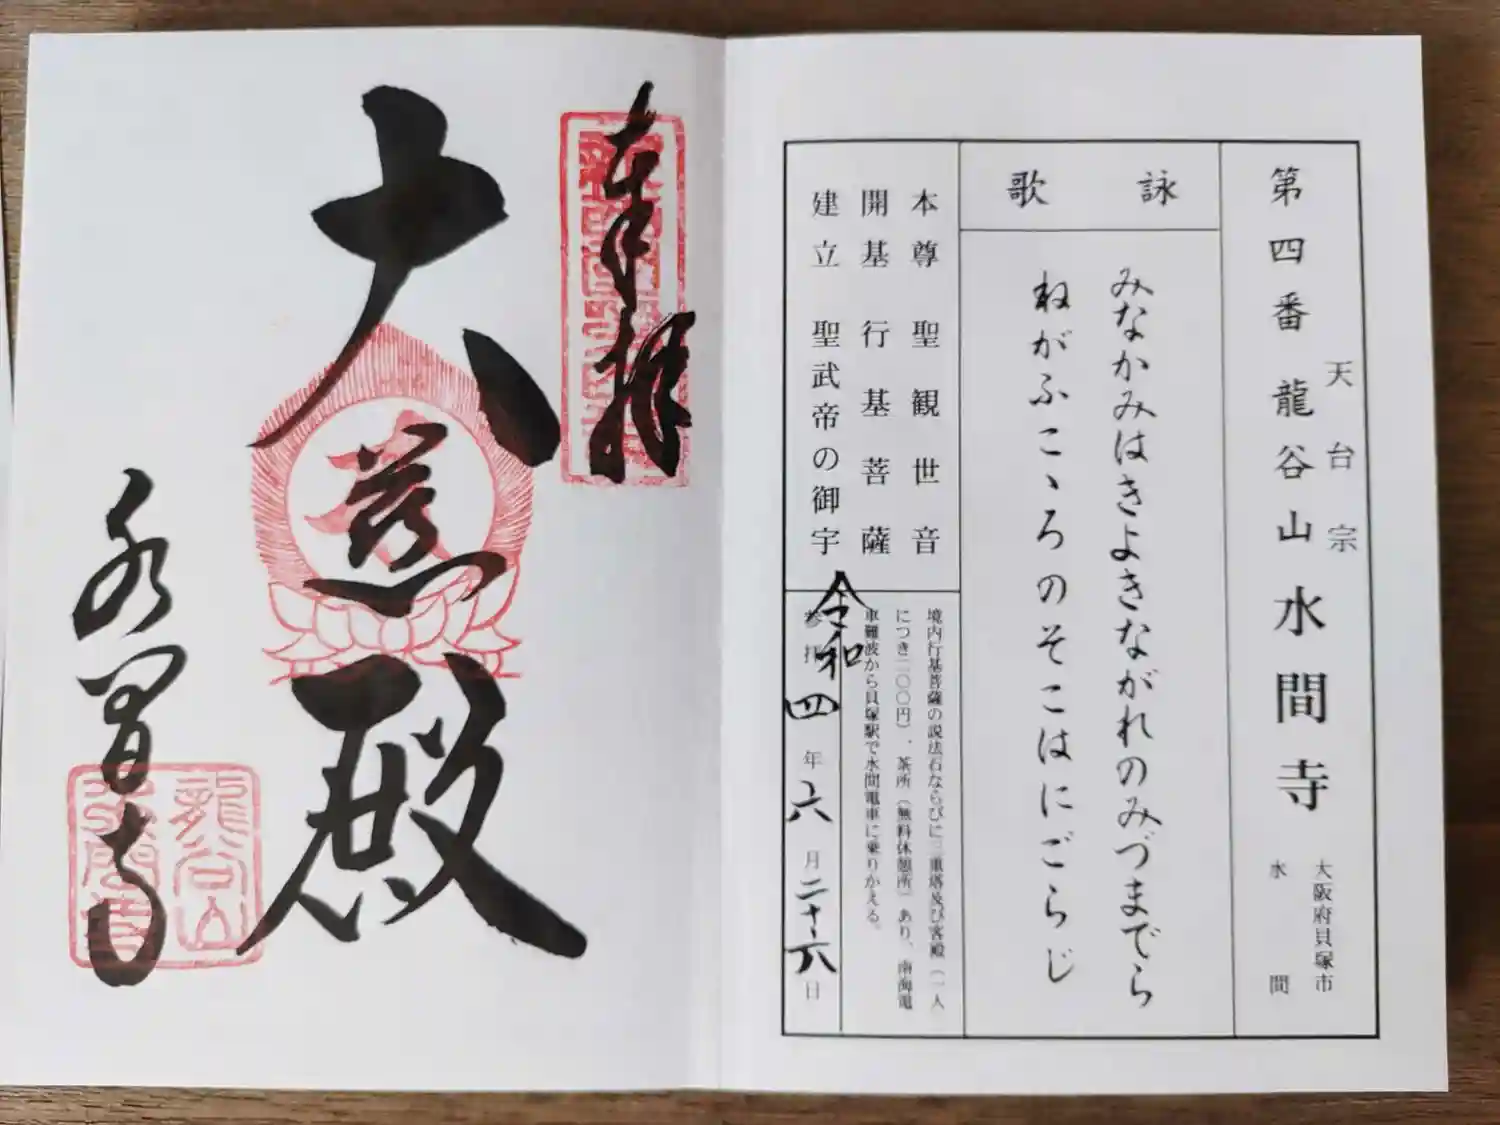 第四番 龍谷山 水間寺
天台宗
大阪府貝塚市
水間
詠歌
みなかみはきよきながれのみづまでら
ねがふこゝろのそこはにごらじ
本尊 聖観世音
開基 行基菩薩
建立 聖武帝の御宇
境内行基菩薩の説法石ならびに三重塔及び客殿(一人
につき二〇〇円)、茶所(無料休憩所)あり、南海電
車難波から貝塚駅で水間電車に乗りかえる。
参拝 令和四年六月二十六日
奉拝
大慈殿
水間寺
龍谷山